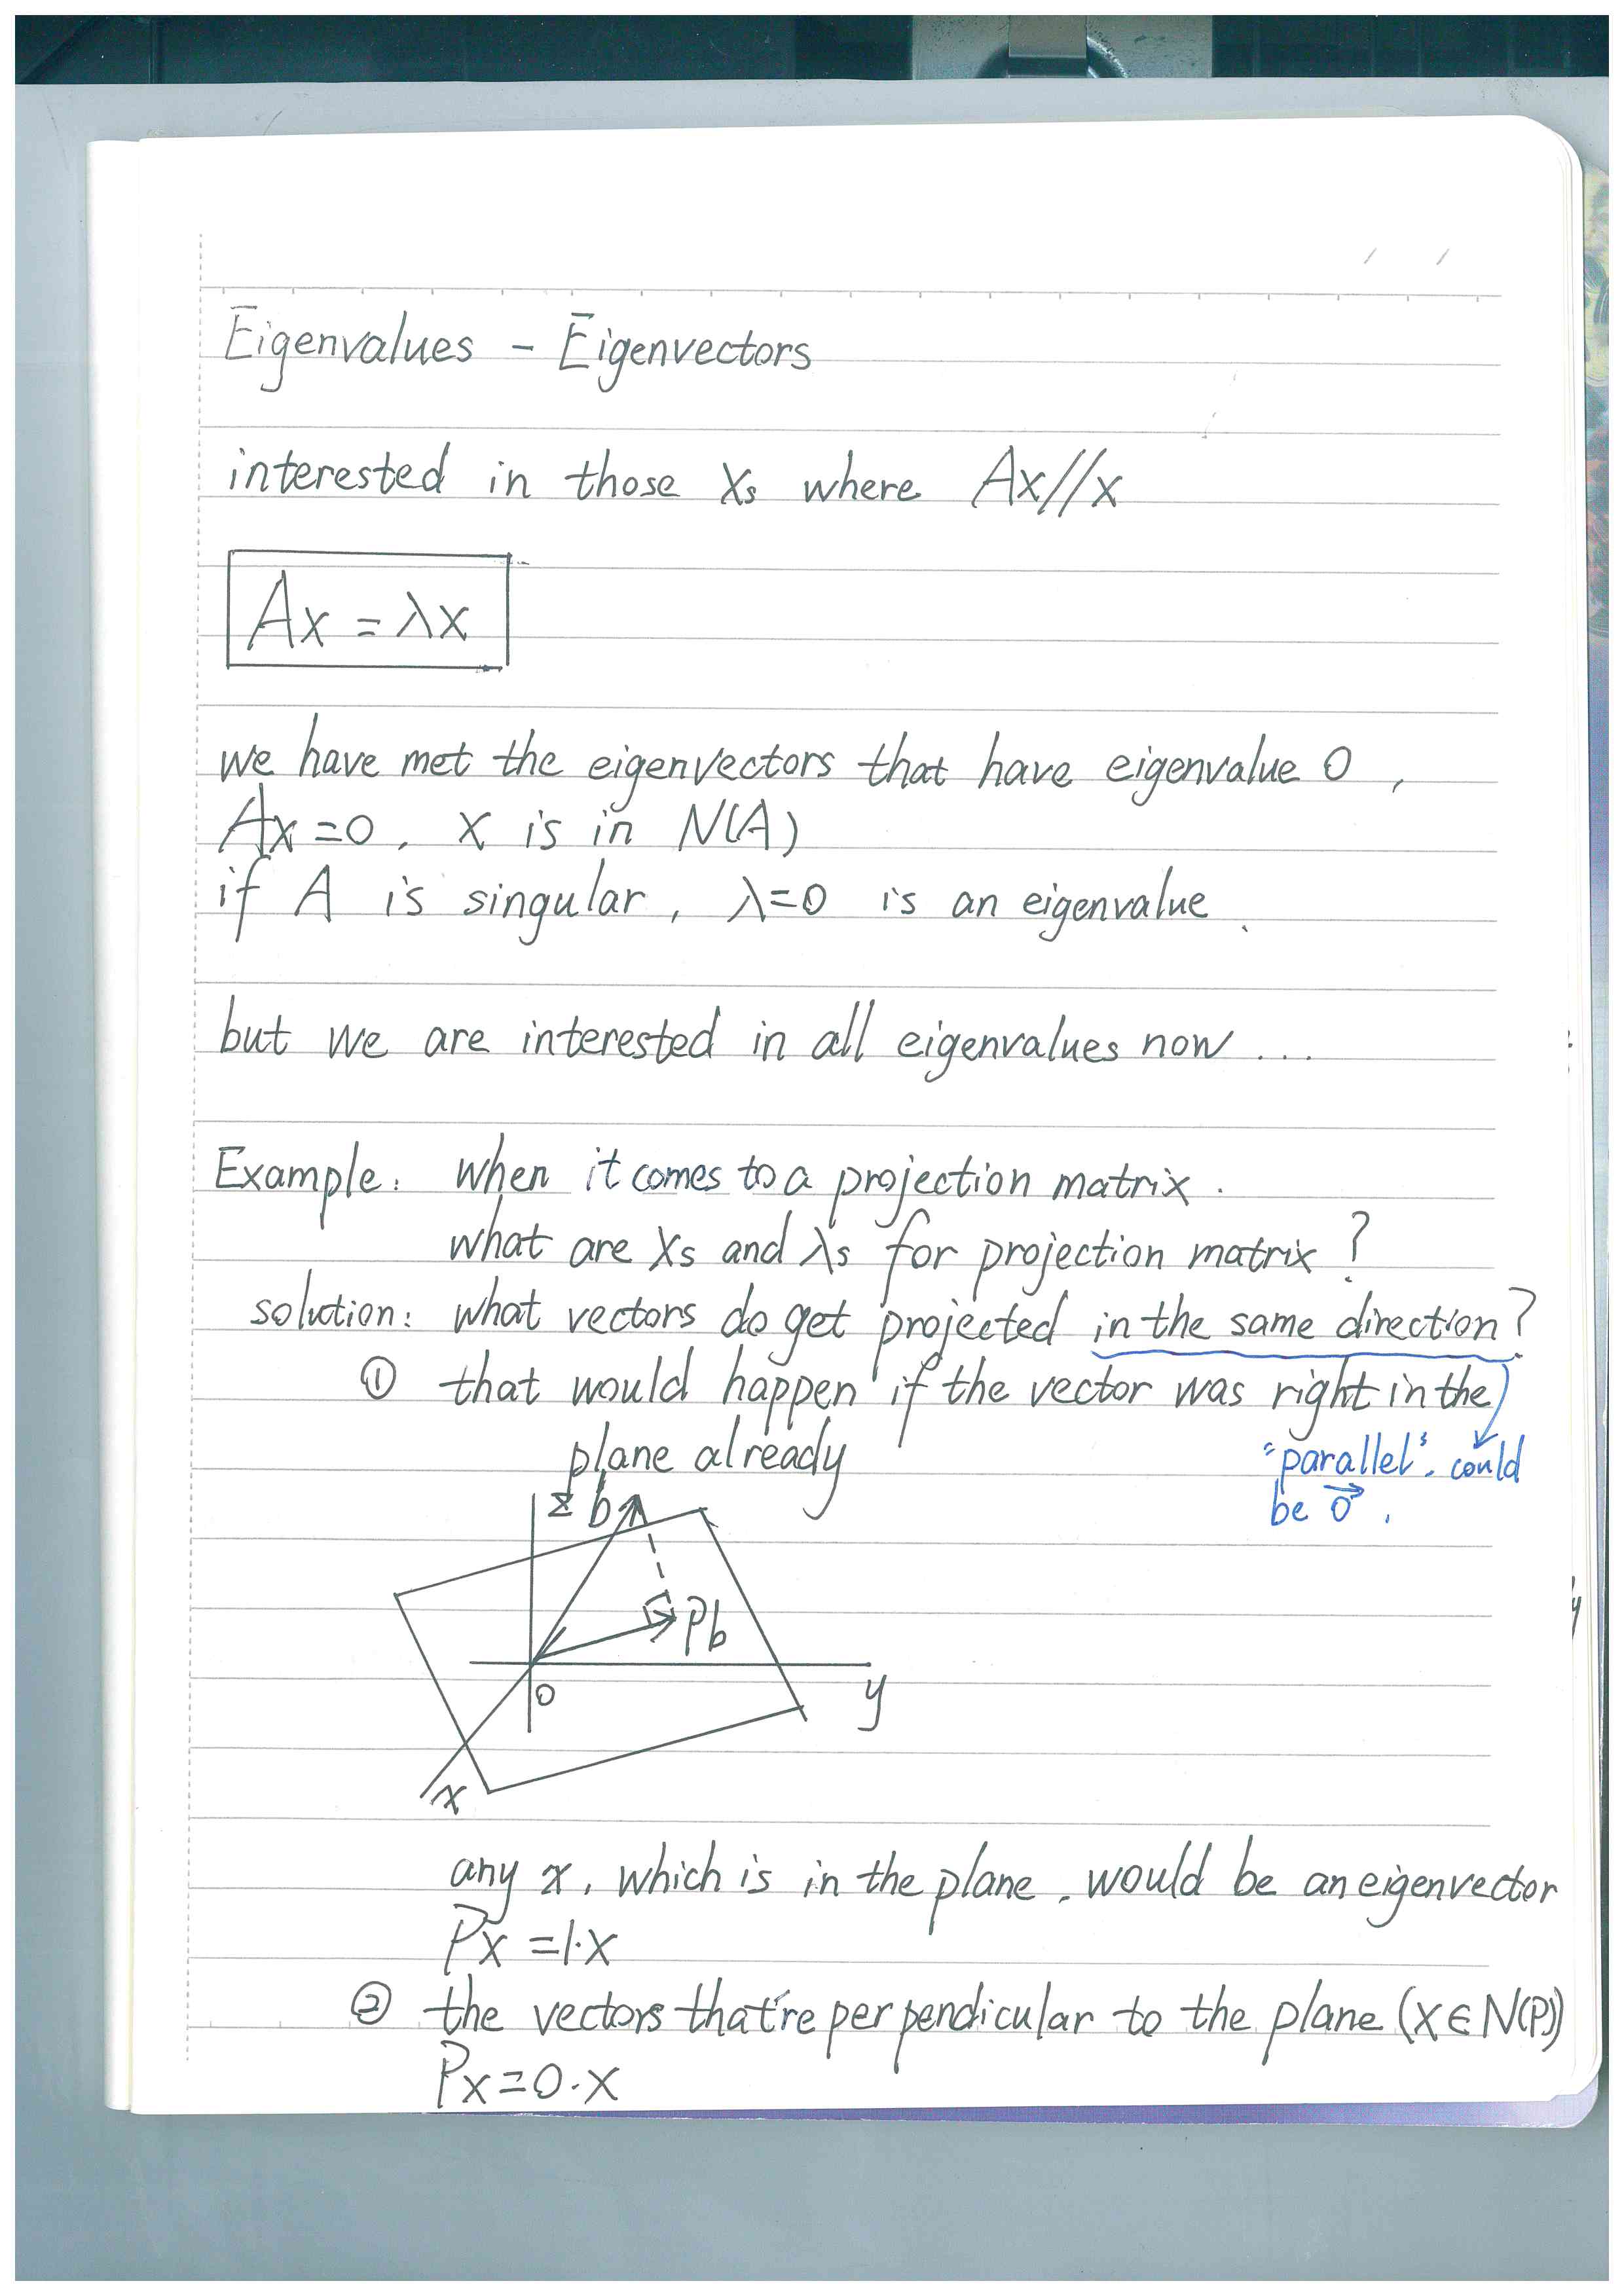 Eigenvalues - Eigenvectors
interested in those Xs where Ax//x
Ax = λx
we have met the eigenvectors that have eigenvalue 0,
Ax=0, x is in N(A)
if A is singular, λ=0 is an eigenvalue.
but we are interested in all eigenvalues now ...
Example: when it comes to a projection matrix.
what are Xs and λs for projection matrix?
solution: what vectors do get projected in the same direction?
① that would happen if the vector was right in the
plane already
"parallel". could
be 0⃗.
z b
Pb
0
y
x
any x, which is in the plane, would be an eigenvector
Px = 1·x
② the vectors that're perpendicular to the plane (x∈N(P))
Px=0·x